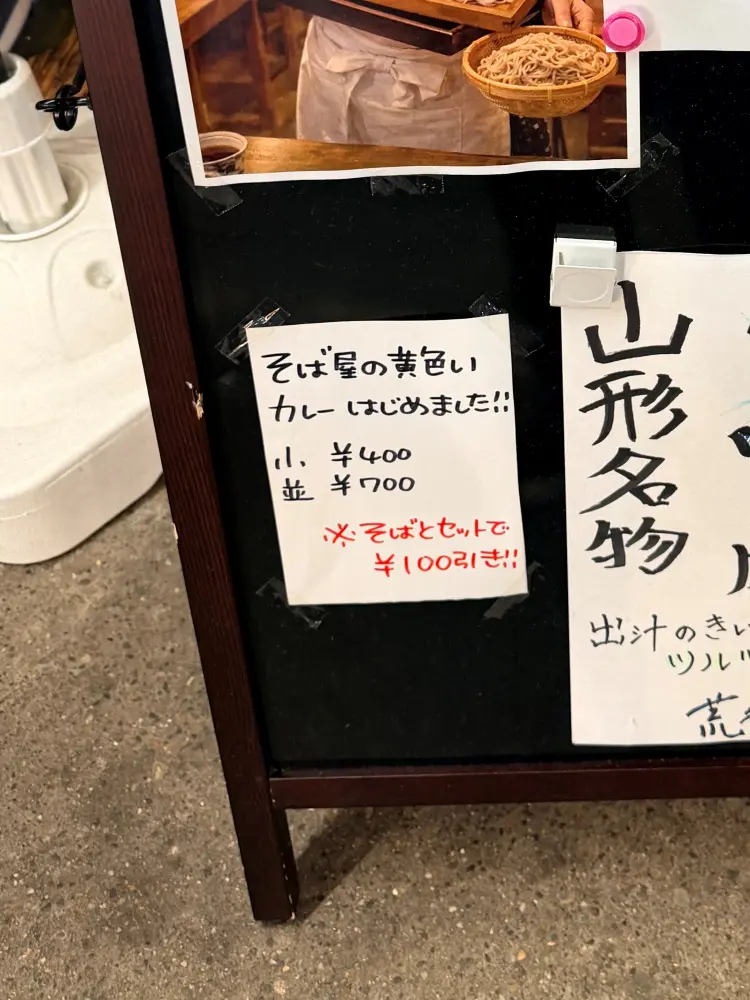 そば屋の黄色い
カレーはじめました!!
小、¥400
並 ¥700
※そばとセットで
¥100引き!!
山形名物
出汁のきい
ツルツ